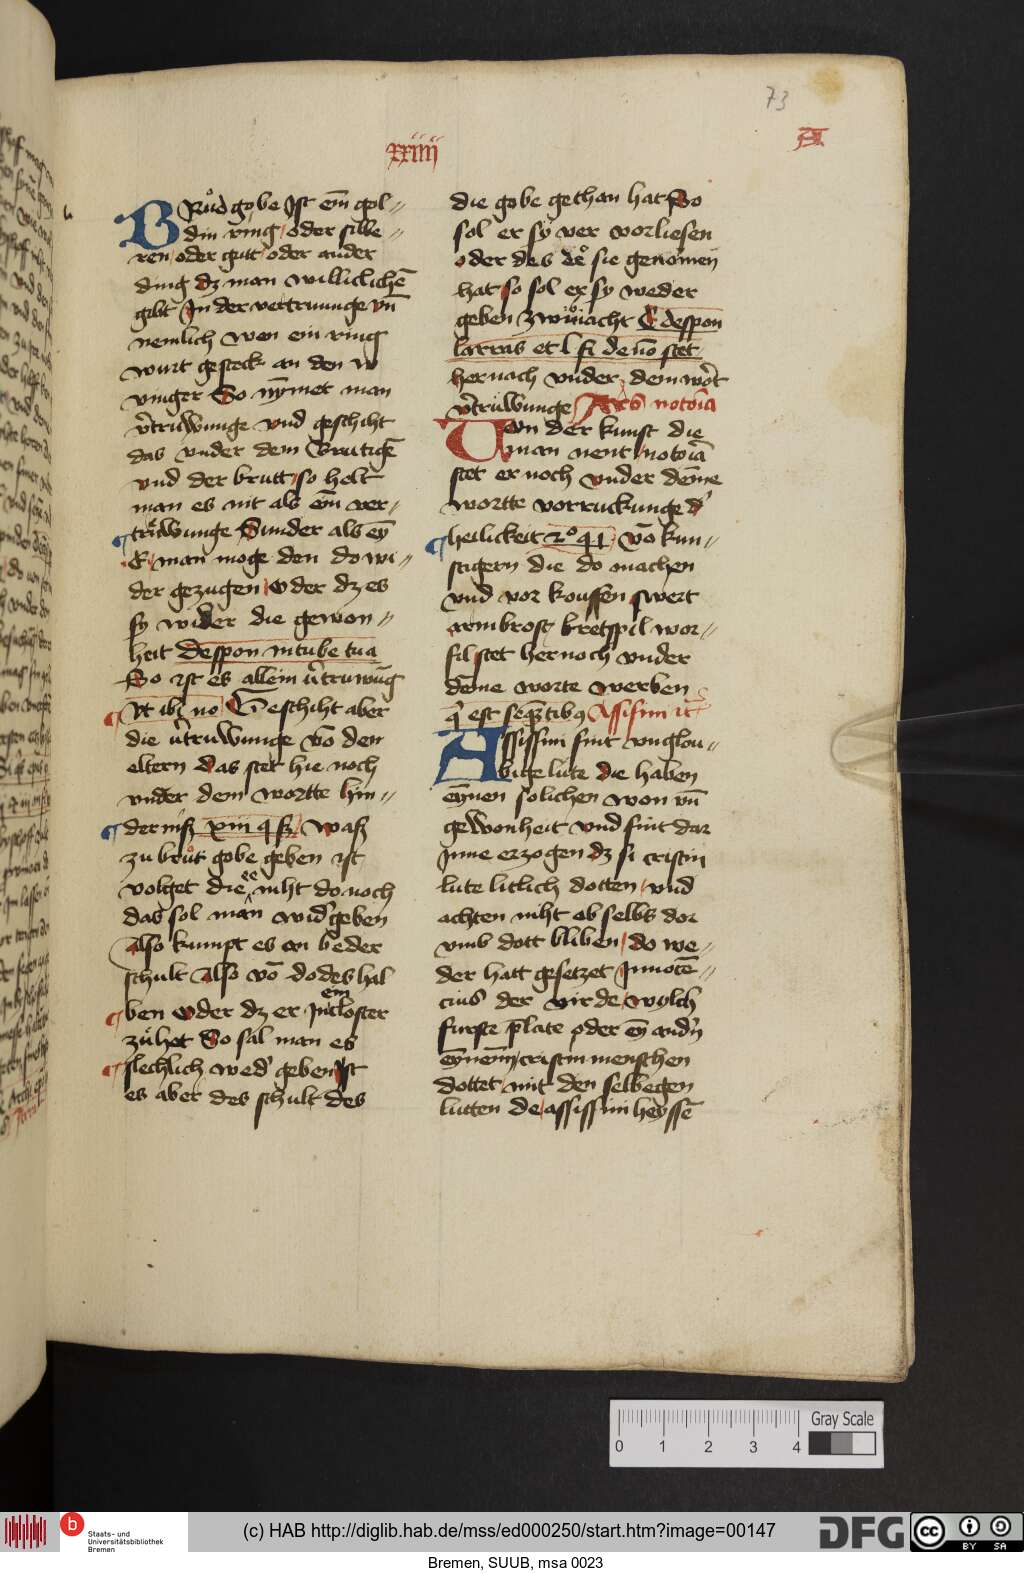 73
xxiiii
A
BRůd gobe Ist ein gol〃
din ring oder silbe〃
ren oder gutt oder ander
ding dz man williclichē
gibt In der vertruunge vn̄
nemlich wen ein ring
wurt gesteck an den v
vinger So nȳmet man
v̓truwunge vnd geschiht
das vnder dem Brutigē
vnd der brutt so helt
man es nit als ein ver〃
truwunge Sunder als eȳ
E man moge den do wi〃
der gezugen oder dz es
sy wider die gewon〃
heit Despon in tube tua
So ist es allein v̓truwūg
Vt ibi no Geschiht aber
die v̓truwunge vō den
eltern das stet hie noch
vnder dem wortte hin〃
dernisz xiii q fz Wasz
zu brůt gobe geben ist
volget die ee niht donoch
das sol man wid̓geben
Also kumpt es on beder
schult Also vō dodes hal
ben oder dz er In ein closter
zůhet So sal man es
slechlich wed̓ geben Ist
es aber des schult des
die gobe gethan hat So
sol er sy ver vorliesen
oder des der sie genomen
hat so sol er sy weder
geben zwiuacht C despon
larras et l fi de no stet
hernach vnder dem wort
v̓truwunge Ars notoīa
Von der kunst die
man nent notoīa
stet er noch vnder deme
wortte vorruckunge d̓
heilickeit 2o q i Vō kun〃
stigern die do machen
vnd vor kouffen swert
armbrost bretspil wor〃
fil stet hernoch vnder
deme worte werben
q̄ est seq̄ntibꝯ Assisini it
Assissini sint vnglou〃
bige lute die haben
eynen solichen won vn̄
gewonheit vnd sint dar
Inne erzogen dz si cristin
lute litlich dotten vnd
achten niht ob selbs dor
vmb dott bliben do we〃
der hatt gesetzet Innocē〃
cius der virde wylch
furste p̄late oder eȳ and̓n
eynem cristin menschen
dottet mit den selbegen
lutten de assissini heyssē
0 1 2 3 4
Gray Scale
b
Staats- und
Universitätsbibliothek
Bremen
(c) HAB http://diglib.hab.de/mss/ed000250/start.htm?image=00147
DFG
cc
BY SA
Bremen, SUUB, msa 0023